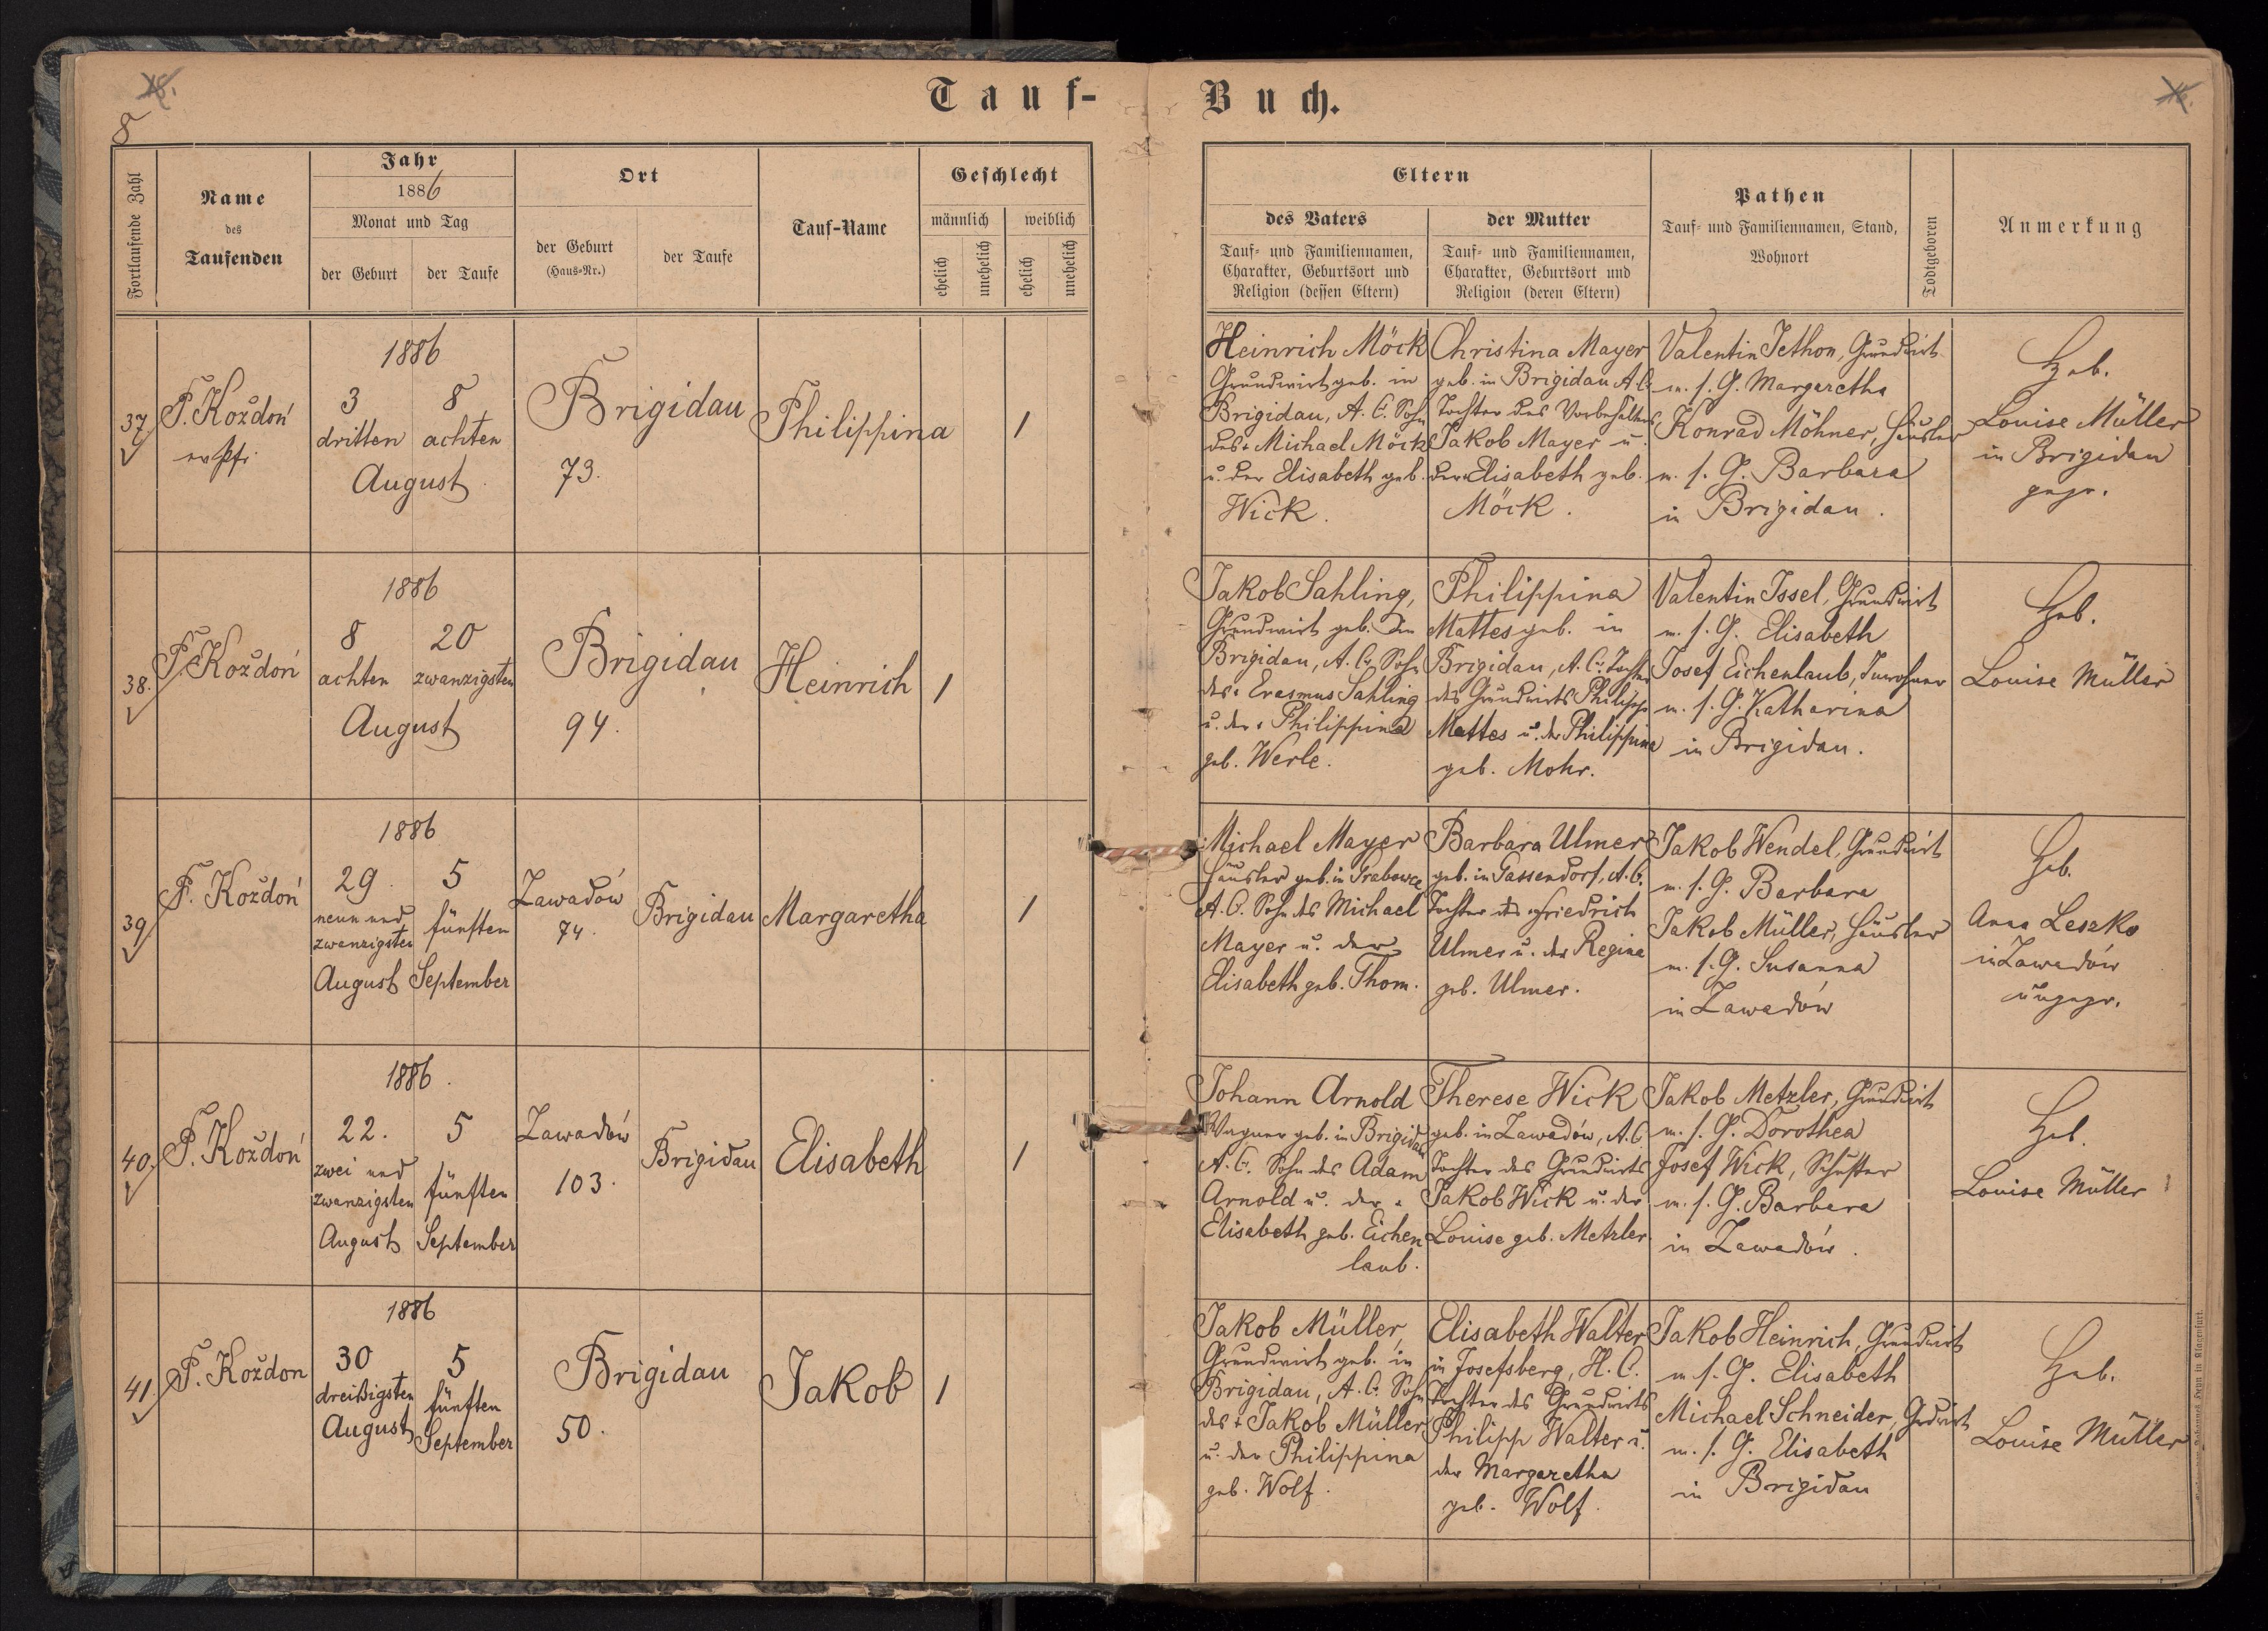 Tauf-
Buch.
8
Fortlaufende Zahl
Name
des
Taufenden
Jahr
1886
Monat und Tag
der Geburt
der Taufe
Ort
der Geburt
(Haus-Nr.)
der Taufe
Tauf-Name
Geschlecht
männlich
weiblich
ehelich
unehelich
ehelich
unehelich
Eltern
des Vaters
Tauf- und Familiennamen,
Charakter, Geburtsort und
Religion (dessen Eltern)
der Mutter
Tauf- und Familiennamen,
Charakter, Geburtsort und
Religion (deren Eltern)
Pathen
Tauf- und Familiennamen, Stand,
Wohnort
Todtgeboren
Anmerkung
37
P. Koždoń
1886
3
dritten
8
achten
August
Brigidau
73.
Philippina
1
Heinrich Möck
Grundwirt geb. in
Brigidau, A. C. Sohn
des + Michael Möck
u. der Elisabeth geb.
Wick.
Christina Mayer
geb. in Brigidau A. C.
Tochter des Vorbehalters
Jakob Mayer u.
der Elisabeth geb.
Möck.
Valentin Jethon, Grundwirt
m. s. G. Margaretha
Konrad Möhner, Häusler
m. s. G. Barbara
in Brigidau.
Heb.
Louise Müller
in Brigidau
gepr.
38.
P. Koždoń
1886
8
achten
20
zwanzigsten
August
Brigidau
94.
Heinrich
1
Jakob Sahling,
Grundwirt geb. in
Brigidau, A. C. Sohn
des + Erasmus Sahling
u. der + Philippina
geb. Werle.
Philippina
Mattes geb. in
Brigidau, A. C. Tochter
des Grundwirts Philipp
Mattes u. der Philippina
geb. Mohr.
Valentin Issel, Grundwirt
m. s. G. Elisabeth
Josef Eichenlaub, Inwohner
m. s. G. Katharina
in Brigidau.
Heb.
Louise Müller
39
P. Koždoń
1886
29.
neun und
zwanzigsten
August
5
fünften
September
Zawadów
74.
Brigidau
Margaretha
1
Michael Mayer
Häusler geb. in Grabowce
A. C. Sohn des Michael
Mayer u. der
Elisabeth geb. Thom.
Barbara Ulmer
geb. in Gassendorf, A. C.
Tochter des + Friedrich
Ulmer u. der Regina
geb. Ulmer.
Jakob Wendel, Grundwirt
m. s. G. Barbara
Jakob Müller, Häusler
m. s. G. Susanna
in Zawadów
Heb.
Anna Leszko
in Zawadów
ungepr.
40.
P. Koždoń
1886.
22.
zwei und
zwanzigsten
August
5
fünften
September
Zawadów
103.
Brigidau
Elisabeth
1
Johann Arnold
Wagner geb. in Brigidau
A. C. Sohn des Adam
Arnold u. der +
Elisabeth geb. Eichen
laub.
Therese Wick
geb. in Zawadów, A. C.
Tochter des Grundwirts
Jakob Wick u. der
Louise geb. Metzler
Jakob Metzler, Grundwirt
m. s. G. Dorothea
Josef Wick, Schuster
m. s. G. Barbara
in Zawadów.
Heb.
Louise Müller
41.
P. Koždon
1886
30
dreißigsten
August
5
fünften
September
Brigidau
50.
Jakob
1
Jakob Müller,
Grundwirt geb. in
Brigidau, A. C. Sohn
des + Jakob Müller
u. der Philippina
geb. Wolf.
Elisabeth Walter
in Josefsberg, H. C.
Tochter des Grundwirts
Philipp Walter u.
der Margaretha
geb. Wolf.
Jakob Heinrich, Grundwirt
m. s. G. Elisabeth
Michael Schneider, Grdwirt
m. s. G. Elisabeth
in Brigidau
Heb.
Louise Müller